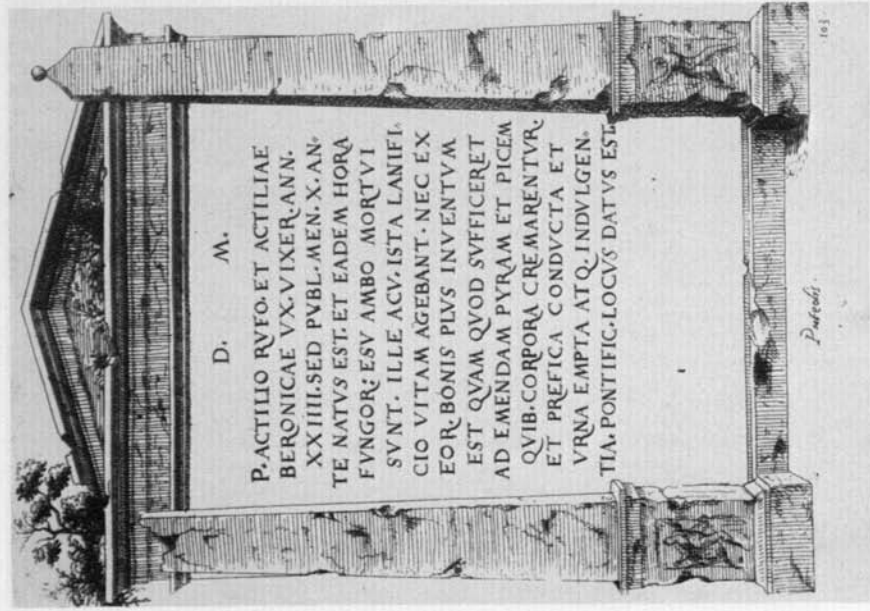 D. M.
P. ACTILIO RVFO. ET ACTILIAE
BERONICAE VX. VIXER. ANN.
XXIIII. SED PVBL. MEN. X. AN.
TE NATVS EST. ET EADEM HORA
FVNGOR: ESV AMBO MORTVI
SVNT. ILLE ACV. ISTA LANIFI.
CIO VITAM AGEBANT. NEC EX
EOR. BONIS PLVS INVENTVM
EST QVAM QVOD SVFFICERET
AD EMENDAM PYRAM ET PICEM
QVIB. CORPORA CREMARENTVR.
ET PREFICA CONDVCTA ET
VRNA EMPTA ATQ. INDVLGEN.
TIA. PONTIFIC. LOCVS DATVS EST.
Puteolis.
103